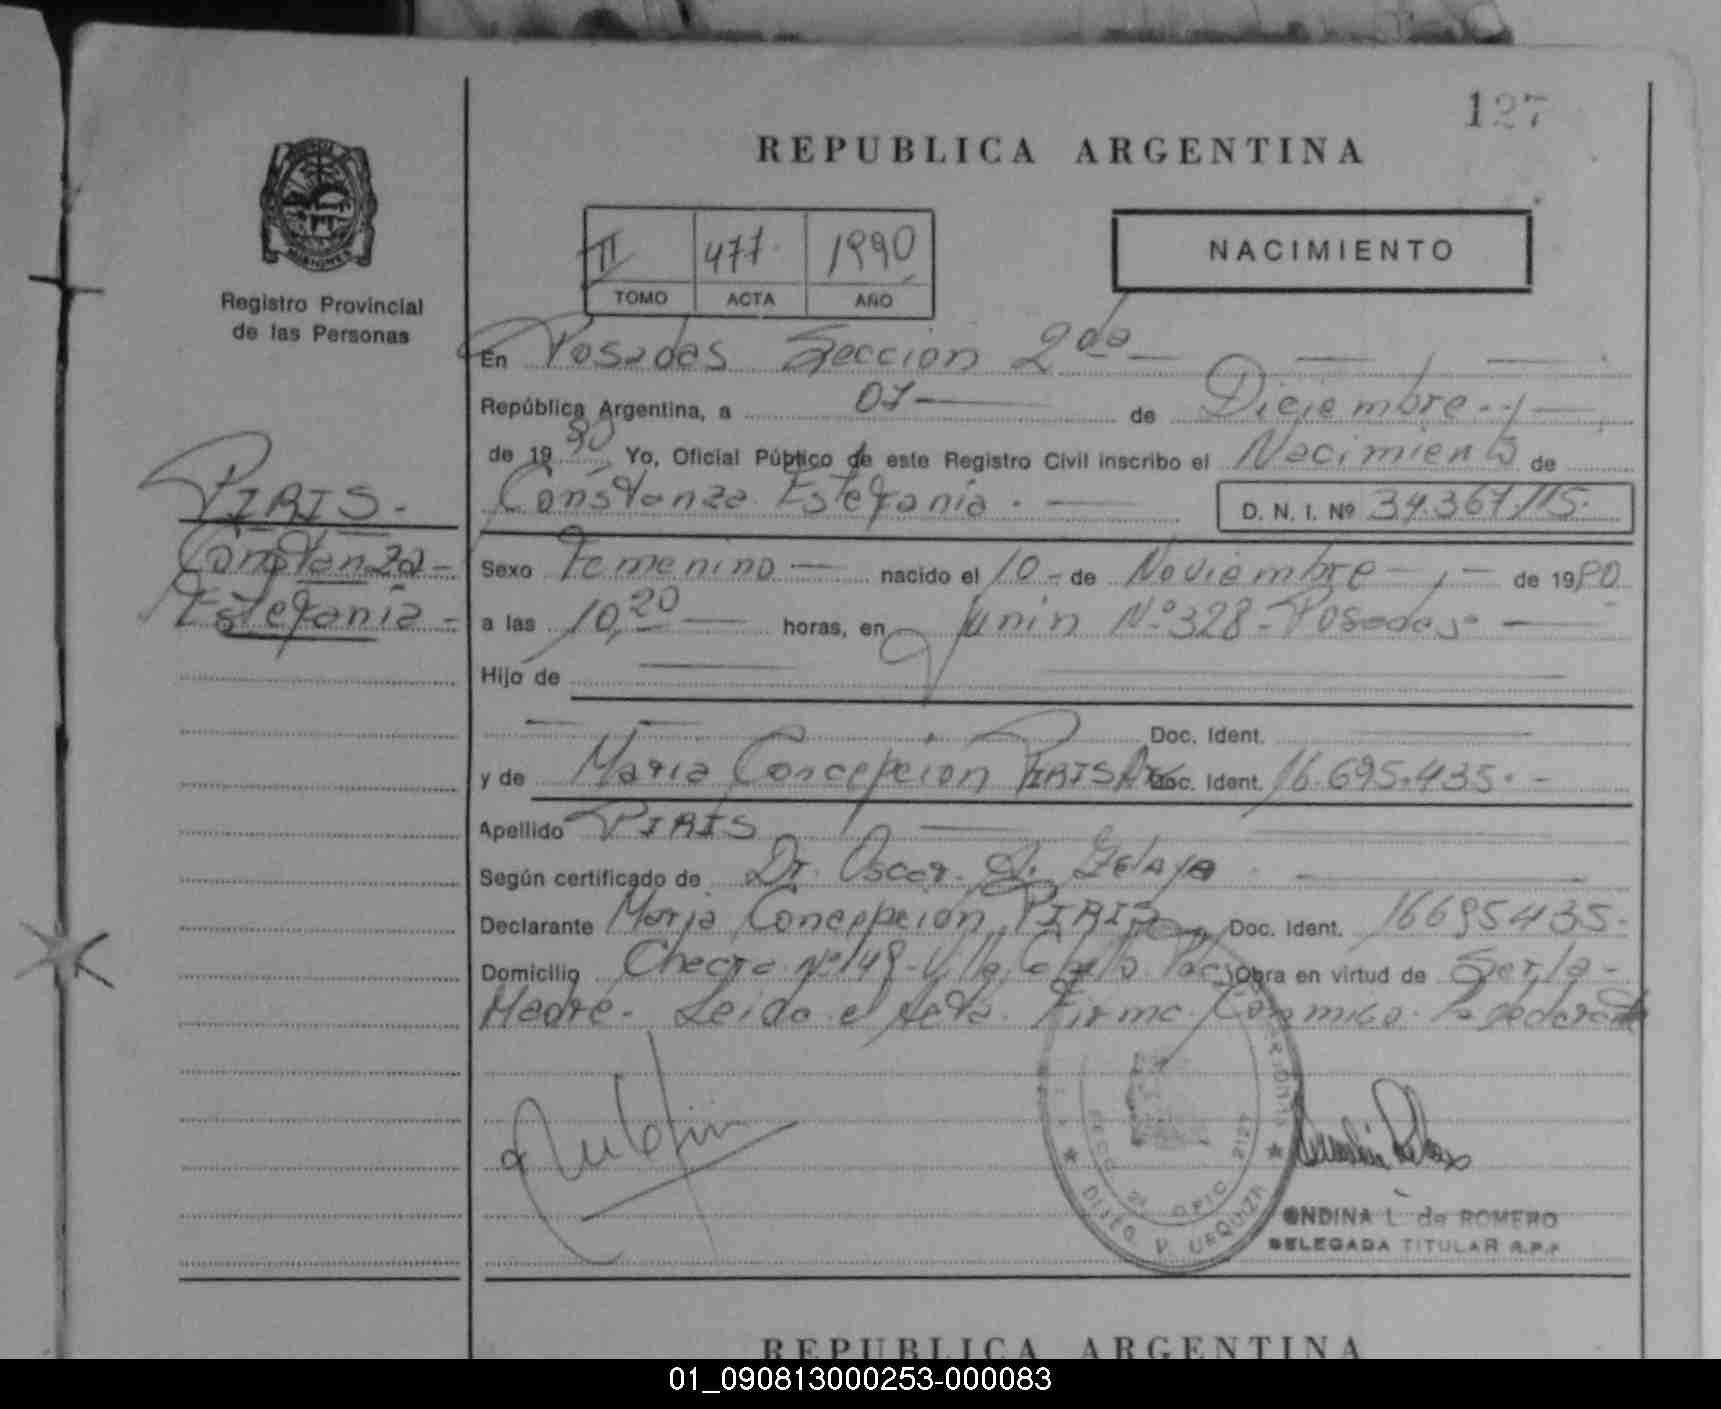 127
REPUBLICA ARGENTINA
MISIONES
Registro Provincial
de las Personas
II 477. 1990
TOMO ACTA AÑO
NACIMIENTO
En Posadas Sección 2da
República Argentina, a 07 de Diciembre
de 1990 Yo, Oficial Público de este Registro Civil inscribo el Nacimiento de
Constanza Estefania. D. N. I. Nº 34.367.115.
PIRIS.
Constanza
Estefania
Sexo Femenino nacido el 10 de Noviembre de 1990
a las 10,20 horas, en Junin Nº 328 - Posadas
Hijo de
Doc. Ident.
y de Maria Concepcion PIRIS Doc. Ident. 16.695.435.
Apellido PIRIS
Según certificado de Dr. Oscar A. Zelaya
Declarante Maria Concepcion PIRIS Doc. Ident. 16695435.
Domicilio Chacra Nº 148 - Villa Cabello Obra en virtud de Ser la
Madre. Leida el Acta. Firma Conmigo la declarante
SECC 2ª OFIC 2127
Dpto. J. J. URQUIZA
ONDINA L. de ROMERO
DELEGADA TITULAR R.P.P.
REPUBLICA ARGENTINA
01_090813000253-000083